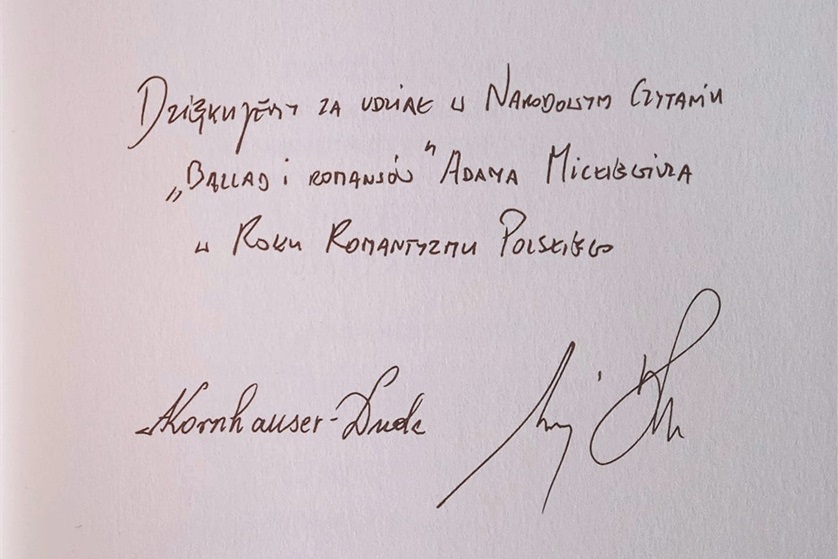 Dziękujemy za udział w Narodowym Czytaniu
„Ballad i romansów” Adama Mickiewicza
w Roku Romantyzmu Polskiego
AKornhauser-Duda